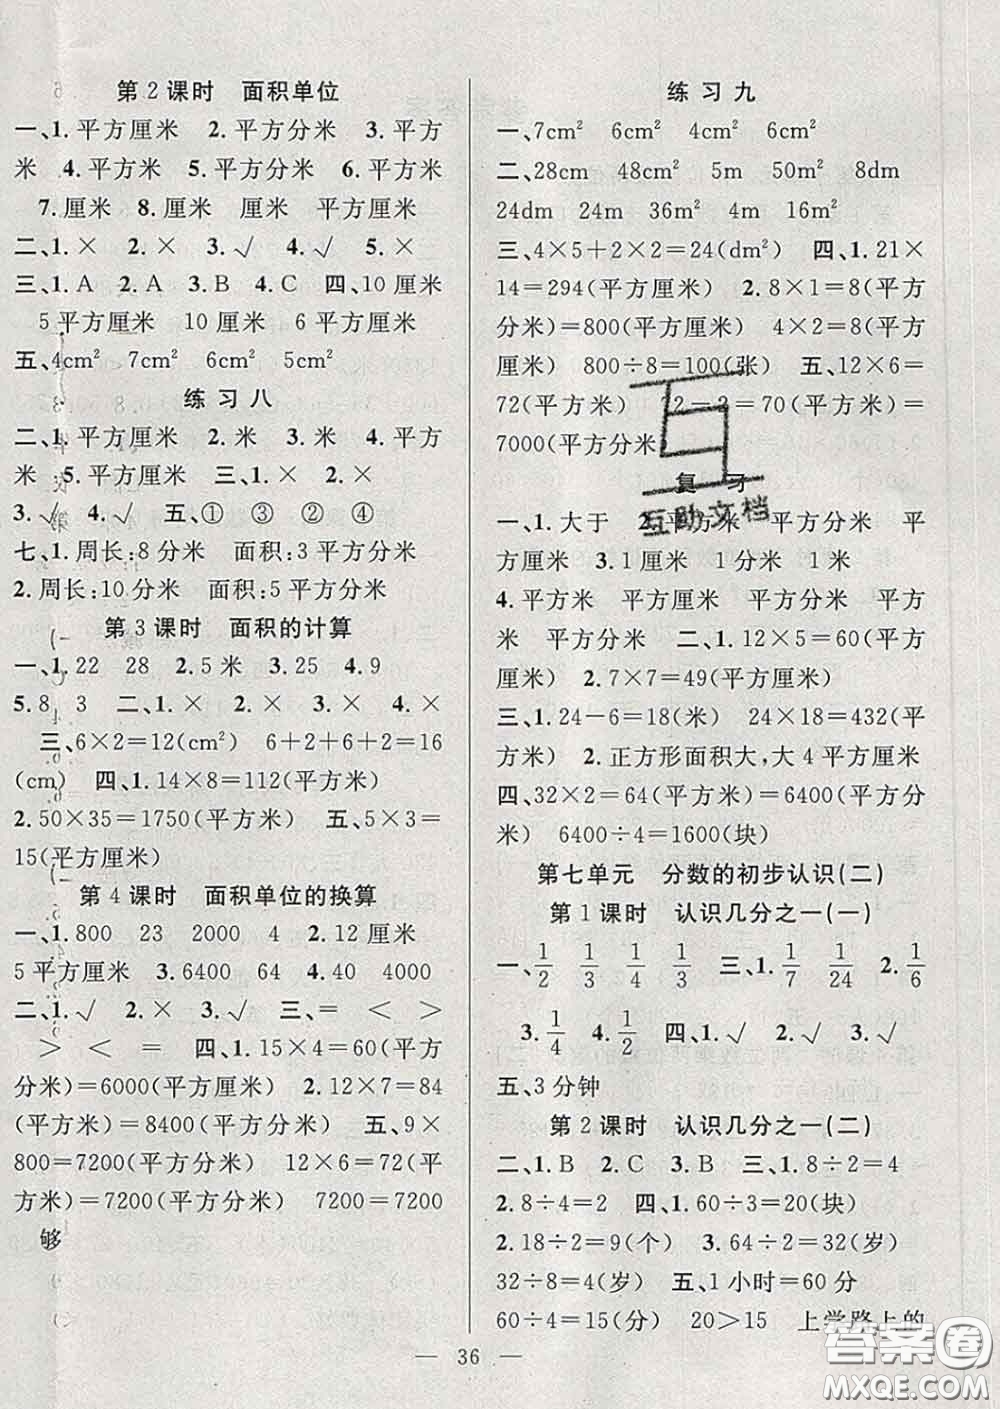 第2课时 面积单位
一、1.平方厘米 2.平方分米 3.平方
米 4.平方米 5.平方分米 6.平方米
7.厘米 8.厘米 厘米 平方厘米
二、1.× 2.× 3.√ 4.√ 5.×
三、1.A 2.A 3.B 4.C 四、10厘米
5平方厘米 10厘米 6平方厘米
五、4cm² 7cm² 6cm² 5cm²
练习八
二、1.平方厘米 2.米 3.米 4.平方
米 5.平方厘米 三、1.× 2.×
3.√ 4.√ 五、① ③ ② ④
七、1.周长:8分米 面积:3平方分米
2.周长:10分米 面积:5平方分米
第3课时 面积的计算
一、1.22 28 2.5米 3.25 4.9
5.8 3 二、1.× 2.× 3.× 4.×
三、6×2=12(cm²) 6+2+6+2=16
(cm) 四、1.14×8=112(平方米)
2.50×35=1750(平方米) 五、5×3=
15(平方厘米)
第4课时 面积单位的换算
一、1.800 23 2000 4 2.12厘米
5平方厘米 3.6400 64 4.40 4000
二、1.√ 2.× 3.√ 三、= < >
> < = 四、1.15×4=60(平方
分米)=6000(平方厘米) 2.12×7=84
(平方米)=8400(平方分米) 五、9×
800=7200(平方分米) 12×6=72(平
方米)=7200(平方分米) 7200=7200
够
练习九
一、7cm² 6cm² 4cm² 6cm²
二、28cm 48cm² 5m 50m² 28m
24dm 24m 36m² 4m 16m²
三、4×5+2×2=24(dm²) 四、1.21×
14=294(平方厘米) 2.8×1=8(平方
分米)=800(平方厘米) 4×2=8(平方
厘米) 800÷8=100(张) 五、12×6=
72(平方米) 72-2=70(平方米)=
7000(平方分米)
复习
一、1.大于 2.平方米 平方分米 平
方厘米 3.1厘米 1分米 1米
4.平方米 平方厘米 平方分米 平方
米 平方分米 二、1.12×5=60(平方
厘米) 2.7×7=49(平方厘米)
三、1.24-6=18(米) 24×18=432(平
方米) 2.正方形面积大,大4平方厘米
四、32×2=64(平方米)=6400(平方分
米) 6400÷4=1600(块)
第七单元 分数的初步认识(二)
第1课时 认识几分之一(一)
一、1/2 1/3 1/4 1/3 三、1.1/7 1/24 2.1/6
3.1/4 4.1/2 四、1.√ 2.√ 3.√
五、3分钟
第2课时 认识几分之一(二)
二、1.B 2.C 3.B 三、1.8÷2=4
2.8÷4=2 四、1.60÷3=20(块)
2.18÷2=9(个) 3.64÷2=32(岁)
32÷8=4(岁) 五、1小时=60分
60÷4=15(分) 20>15 上学路上的
36
互助文档
答案圈
MXQE.COM